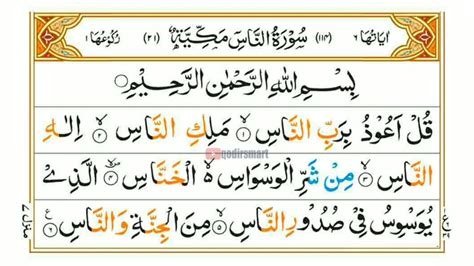 اٰیَاتُهَا ٦ (١١٤) سُوْرَةُ النَّاسِ مَكِّيَّةٌ (٢١) رُكُوْعُهَا ١
بِسْمِ اللهِ الرَّحْمٰنِ الرَّحِيْمِ
قُلْ اَعُوْذُ بِرَبِّ النَّاسِ ١ مَلِكِ النَّاسِ ٢ اِلٰهِ
النَّاسِ ٣ مِنْ شَرِّ الْوَسْوَاسِ ٥ الْخَنَّاسِ ٤ الَّذِیْ
يُوَسْوِسُ فِیْ صُدُوْرِ النَّاسِ ٥ مِنَ الْجِنَّةِ وَالنَّاسِ ٦
qodirsmart
منزل ٧